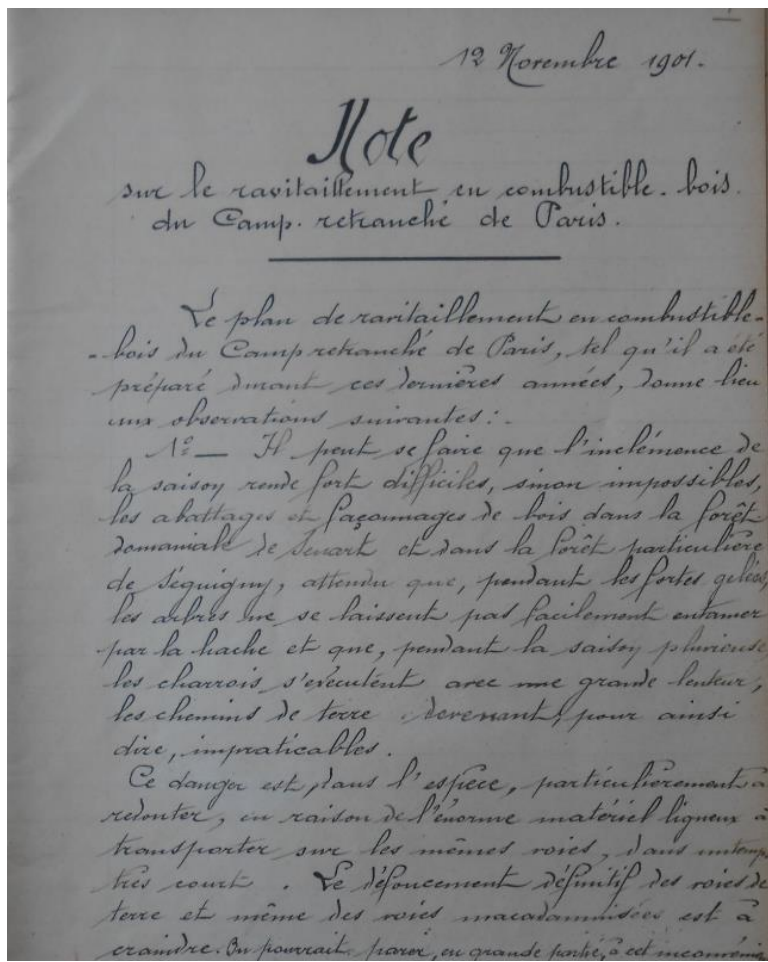 12 Novembre 1901.
Note
sur le ravitaillement en combustible-bois.
du Camp. retranché de Paris.
Le plan de ravitaillement en combustible-
-bois du Camp retranché de Paris, tel qu'il a été
préparé durant ces dernières années, donne lieu
aux observations suivantes:-
1º — Il peut se faire que l'inclémence de
la saison rende fort difficiles, sinon impossibles,
les abattages et façonnages de bois dans la forêt
domaniale de Sénart et dans la forêt particulière
de Séquigny, attendu que, pendant les fortes gelées,
les arbres ne se laissent pas facilement entamer
par la hache et que, pendant la saison pluvieuse
les charrois s'exécutent avec une grande lenteur,
les chemins de terre devenant, pour ainsi
dire, impraticables.
Ce danger est, dans l'espèce, particulièrement à
redouter, en raison de l'énorme matériel ligneux à
transporter sur les mêmes voies, dans un temps
très court. Le défoncement définitif des voies de
terre et même des voies macadamnisées est à
craindre. On pourrait parer, en grande partie, à cet